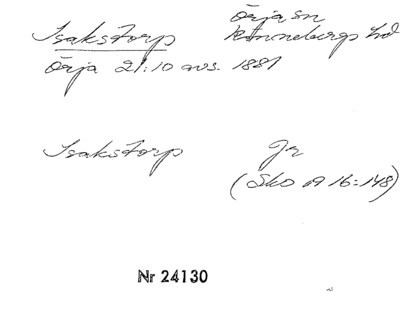 Isakstorp Örja sn
Rönnebergs hd
Örja 21:10 avs. 1881
Isakstorp Jr
(Sko A 16:148)
Nr 24130